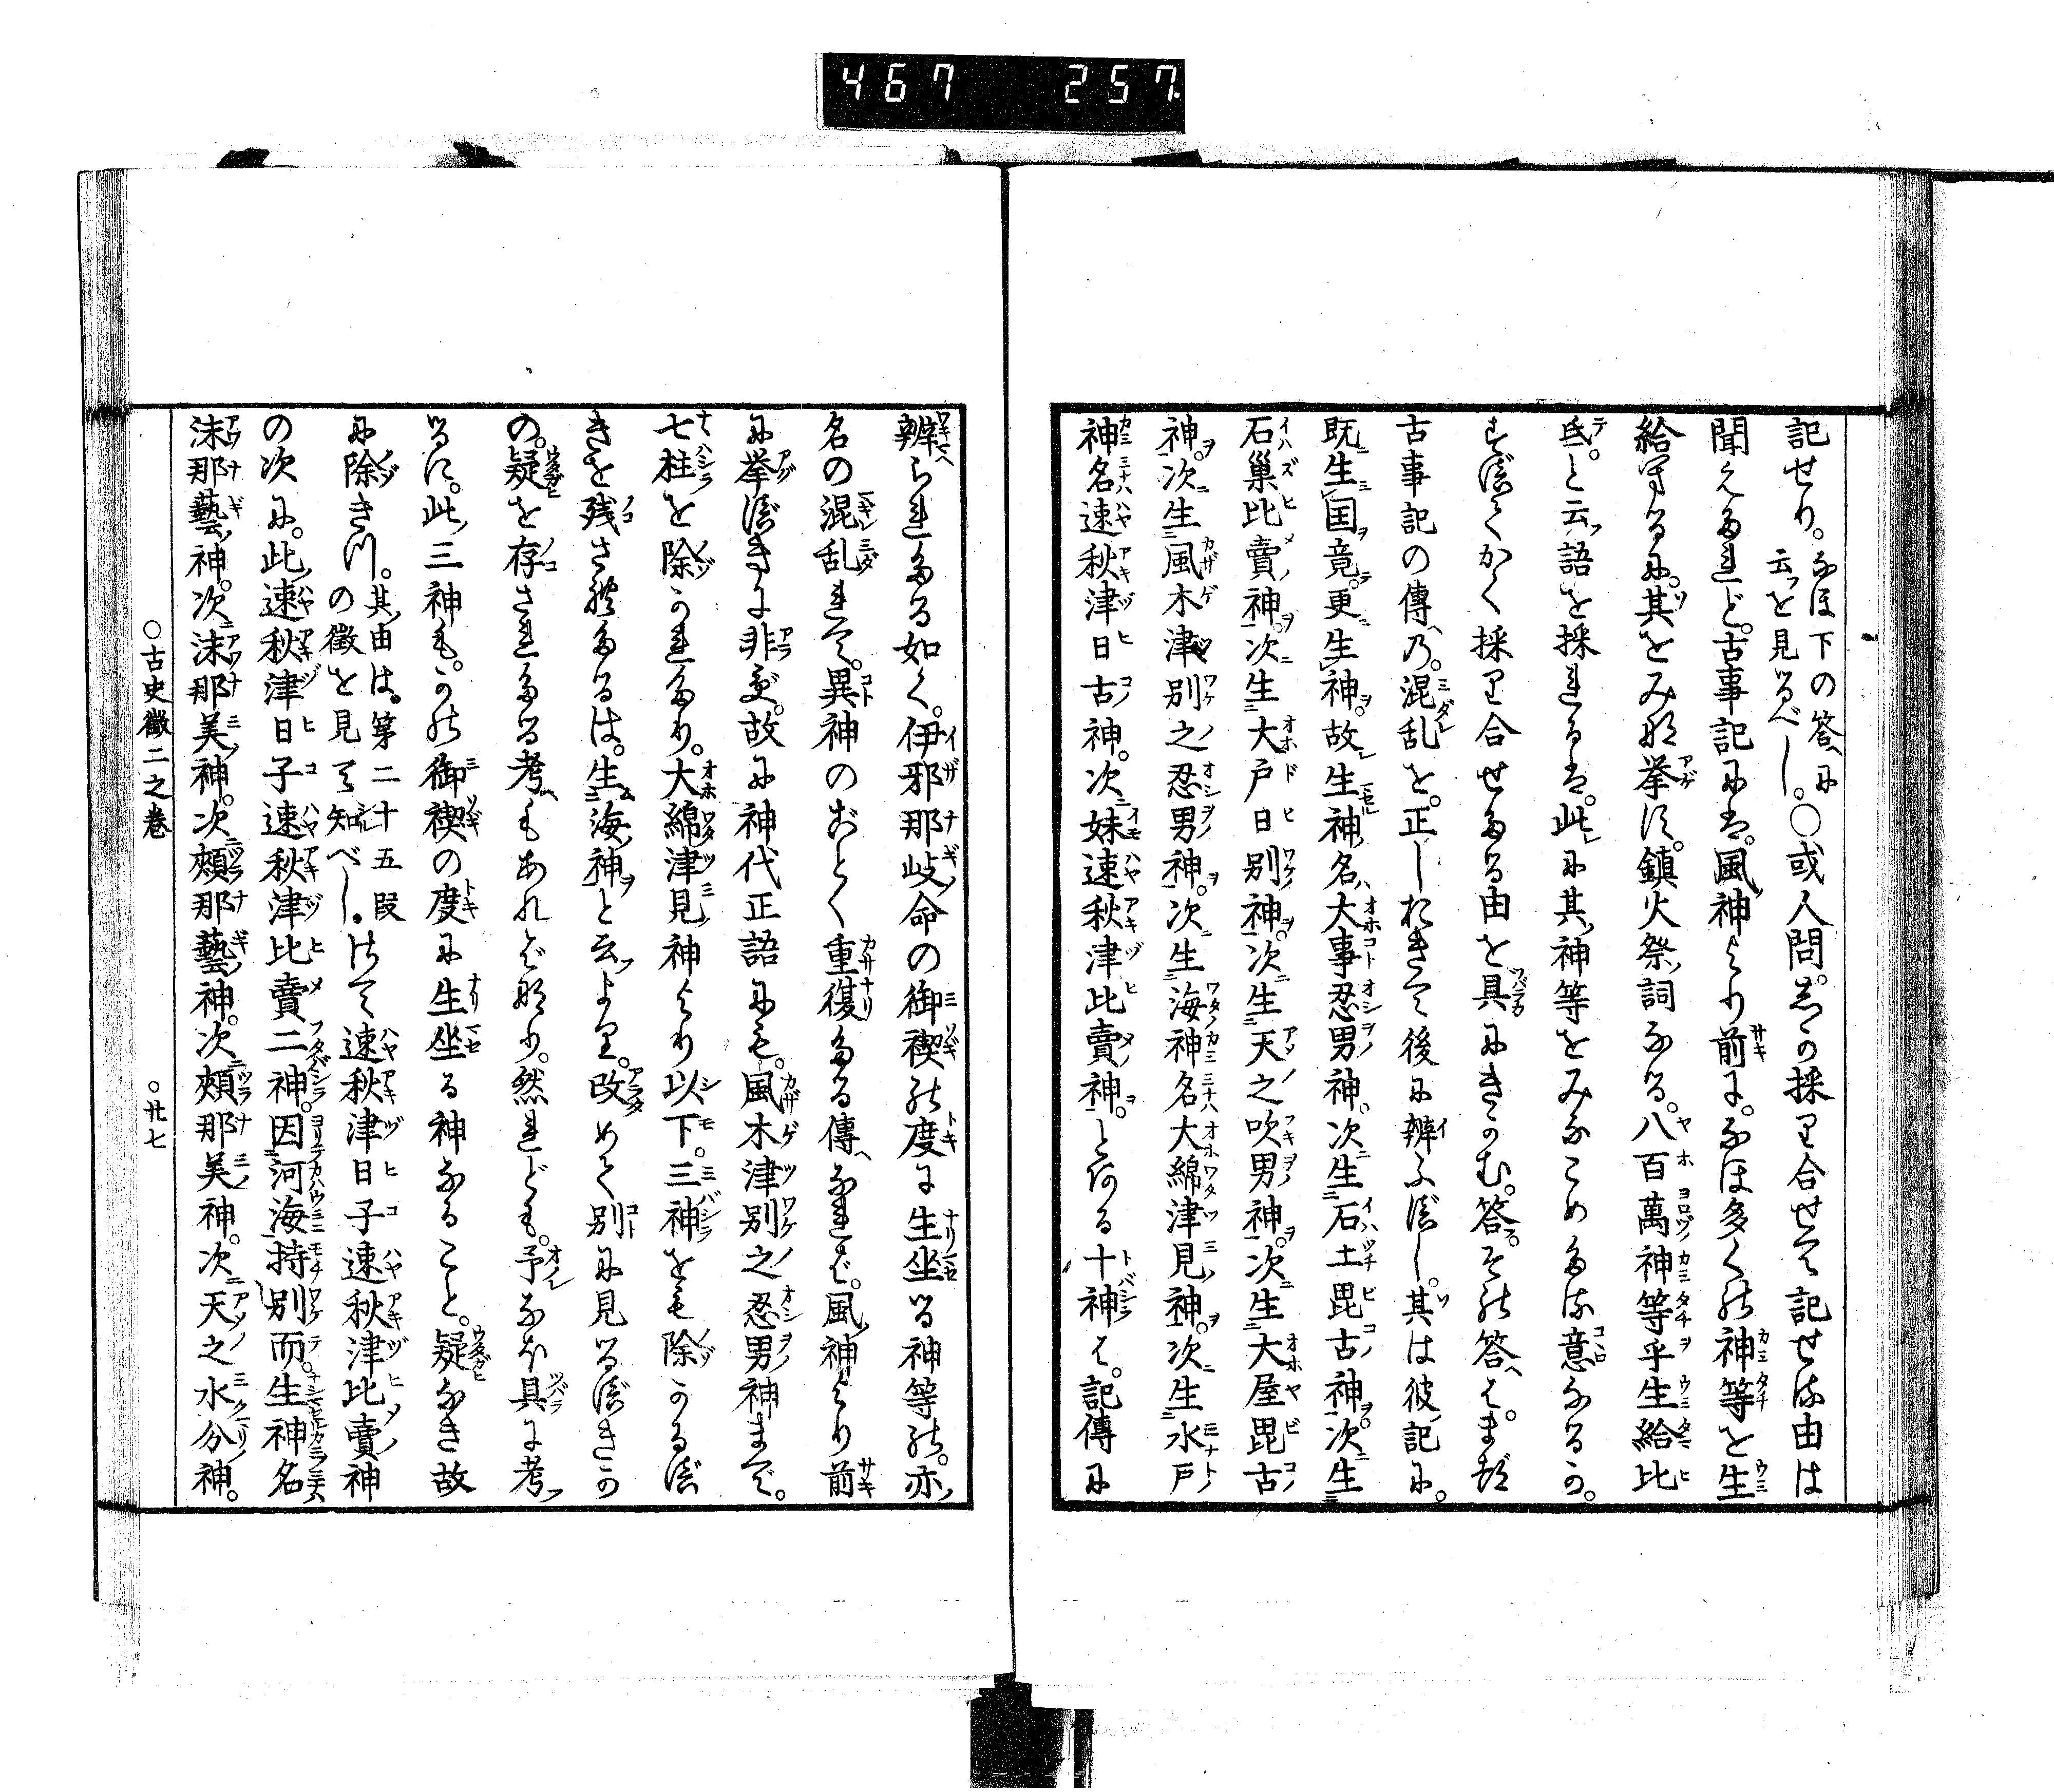 467 257.
記せり。なほ下の答に
云ふを見るべし。○或人問。しか採り合せて記せる由は
聞えたれど。古事記には。風神より前に。なほ多くの神等を生
給ふるに。其をみな挙ず。鎮火祭詞なる。八百萬神等乎生給比
氐。と云語を採れるは。此に其神等をみなこめたる意なるか。
まづかく採り合せたる由を具にきかむ。答。その答へは。まづ
古事記の傳の。混乱を。正しおきて後に辨ふべし。其は彼記に。
既生国竟。更生神。故生神名大事忍男神。次生石土毘古神。次生
石巣比賣神。次生大戸日別神。次生天之吹男神。次生大屋毘古
神。次生風木津別之忍男神。次生海神名大綿津見神。次生水戸
神名速秋津日古神。次妹速秋津比賣神。とある十神は。記傳に
辨らはれたる如く。伊邪那岐命の御禊の度に生坐る神等の。亦
名の混乱れて。異神のごとく重復たる傳なれば。風神より前
に挙べきに非ず。故に神代正語にも。風木津別之忍男神まで。
七柱を除かれたり。大綿津見神より以下。三神をも除かるべ
きを残されたるは。生海神と云より。改めて別に見るべきか
の。疑を存されたる考へもあればなり。然れども。予なほ具に考
るに。此三神も。かの御禊の度に生坐る神なること。疑なき故
に除きつ。其由は。第二十五段
の徴を見て知べし。はて速秋津日子速秋津比賣神
の次に。此速秋津日子速秋津比賣二神。因河海持別而。生神名
沫那藝神。次沫那美神。次頬那藝神。次頬那美神。次天之水分神。
○古史徴二之巻 ○廿七